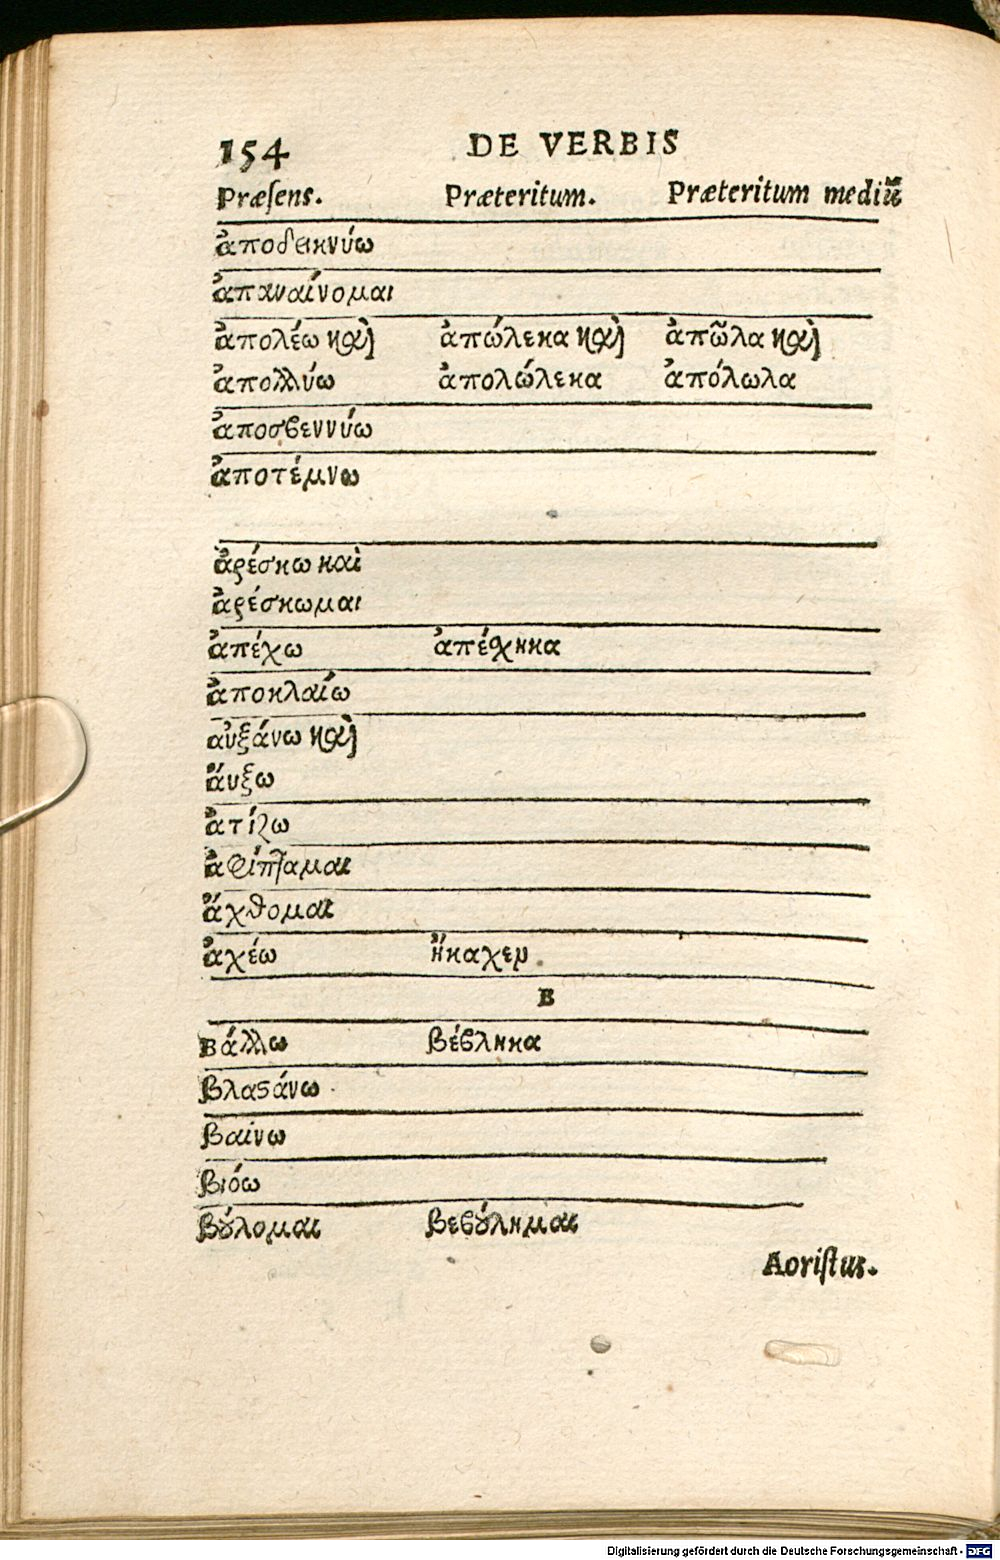 154 DE VERBIS
Præsens. Præteritum. Præteritum mediũ
ἀποδεικνύω
ἀπαναίνομαι
ἀπολέω καὶ ἀπώλεκα καὶ ἀπῶλα καὶ
ἀπολλύω ἀπολώλεκα ἀπόλωλα
ἀποσβεννύω
ἀποτέμνω
ἀρέσκω καὶ
ἀρέσκωμαι
ἀπέχω ἀπέχηκα
ἀποκλαίω
αὐξάνω καὶ
ἄυξω
ἀτίζω
ἀφίπταμαι
ἄχθομαι
ἀχέω ἤκαχεν
B
Βάλλω βέβληκα
βλαϛάνω
βαίνω
βιόω
βȣ́λομαι βεβȣ́λημαι
Aoristus.
Digitalisierung gefördert durch die Deutsche Forschungsgemeinschaft - DFG